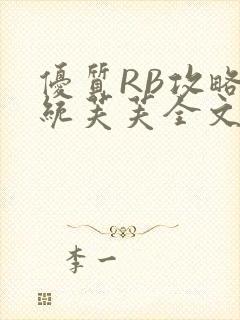 優質RB攻略
統芙芙全文
李一